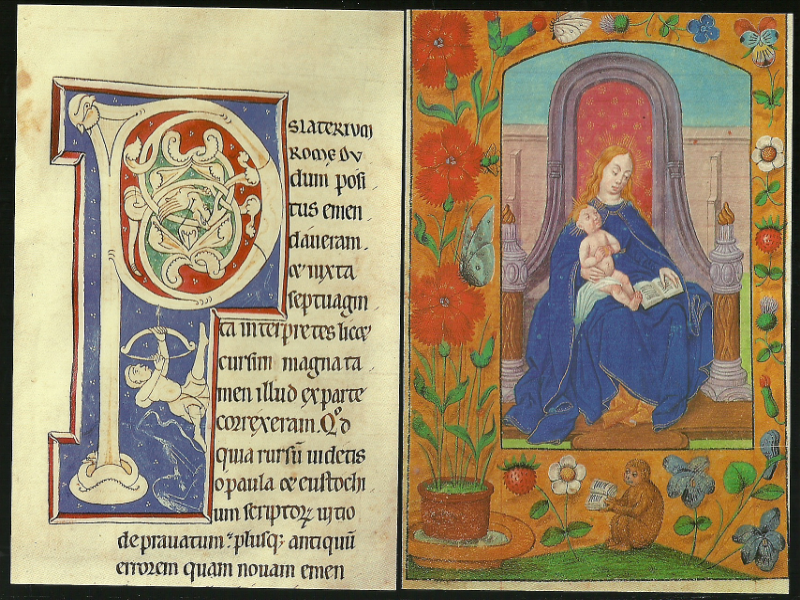 PSLATERIVM
ROMĘ DV
dum posi
tus emen
daueram.
& iuxta
septuagin
ta interpretes lic&
cursim magna ta
men illud ex parte
correxeram. Qđ
quia rursū uidetis
o paula & eustochi
um scriptoꝝ uitio
deprauatum · plusq; antiquū
errorem quam nouam emen